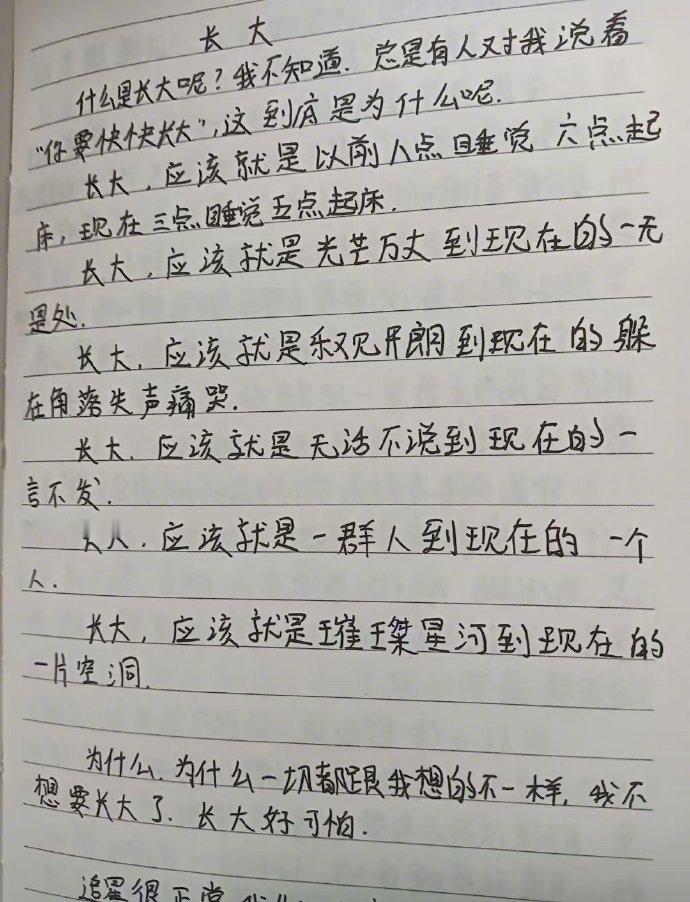 长大
什么是长大呢?我不知道.总是有人对我说着
"你要快快长大",这到底是为什么呢.
长大,应该就是以前八点睡觉 六点起
床,现在三点睡觉五点起床.
长大,应该就是光芒万丈到现在的一无
是处.
长大,应该就是乐观开朗到现在的躲
在角落失声痛哭.
长大.应该就是无话不说到现在的一
言不发.
应该就是一群人到现在的一个
人.
长大,应该就是璀璨星河到现在的
一片空洞.
为什么.为什么一切都跟我想的不一样,我不
想要长大了.长大好可怕.
追星很正常